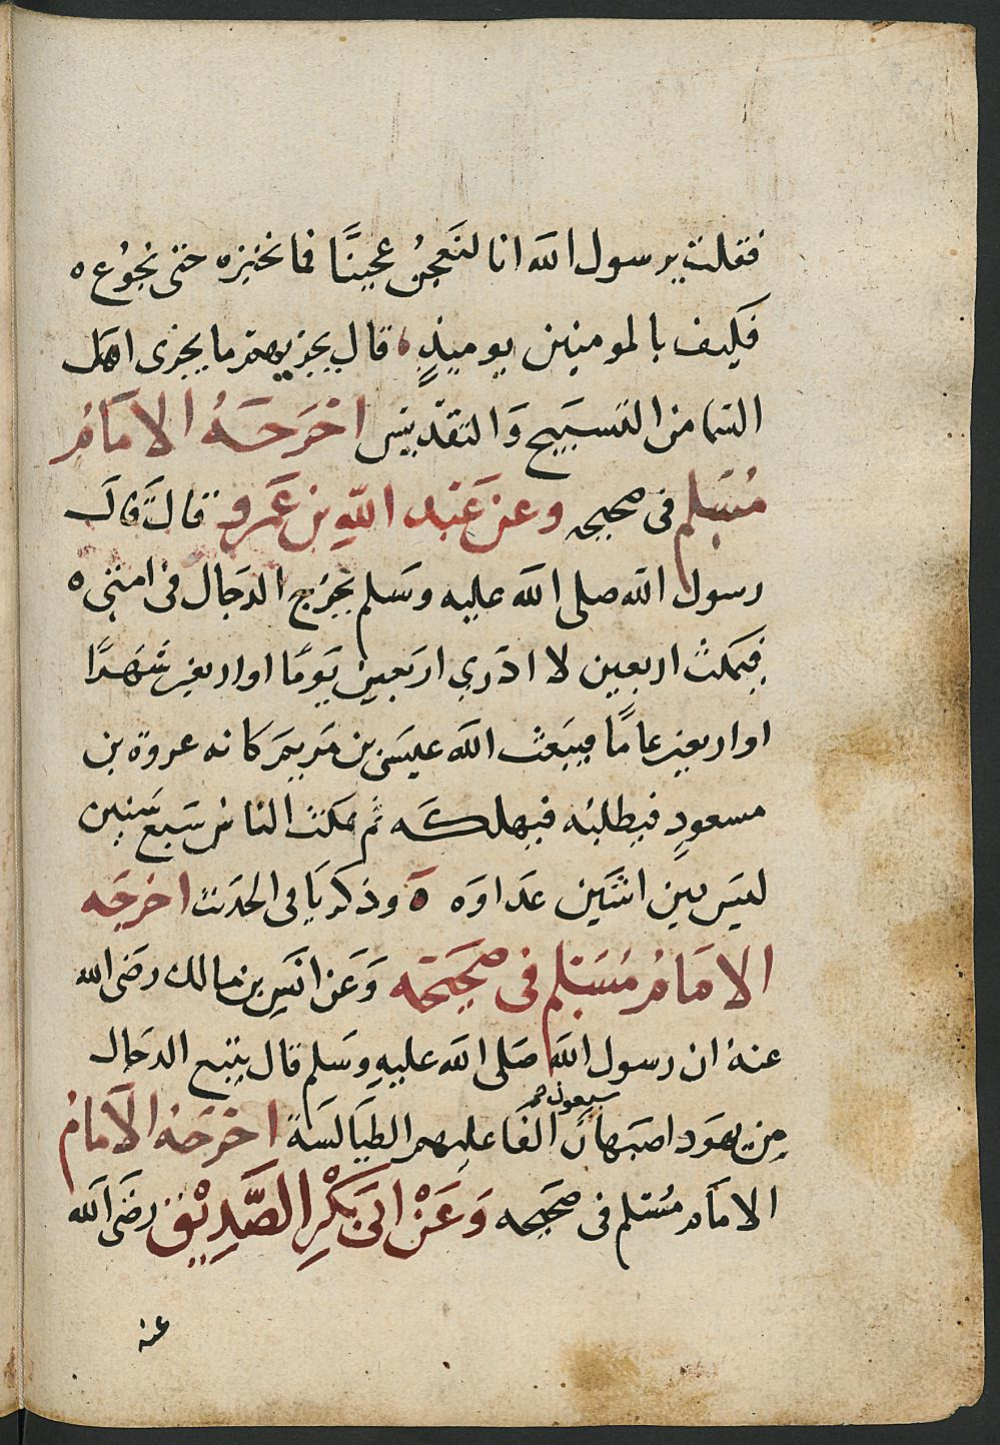 فقلت يرسول الله انا لنَعجِنُ عجينًا فما نخبزه حتى نجُوع ه
فكيف بالمومنين يوميذٍ ه قال يجزيهم ما يجزى اهل
السما من التسبيح وَالتقدِيس اخرَجَهُ الامَامُ
مُسلم فى صحيحه وعن عَبد اللهِ بن عَمرٍو قال قال
رسول الله صلى الله عليه وسَلم يخرُج الدَجال فى امتى ه
فيَمكث اربعين لا ادري اربَعين يَومًا او اربعين شَهرًا
او اربعين عامًا فيبَعث الله عيسَى بن مَريمَ كانه عروة بن
مسعودٍ فيطلبُه فيهلكه ثم يمكث الناسُ سَبع سَنين
ليسَ بين اثنَين عدَاوَه ه وذكر باقى الحدَيث اخرجَه
الامَامُ مُسَلم فى صَحيحَه وَعَن انَسِ بن مالك رضَى الله
عنهُ ان رسول الله صَلى الله عليهِ وسَلم قال يتبع الدجال
سبعون صح
مِن يهوَد اصبَهانَ الفًا عليهم الطيَالسَة اخرَجَهُ الامَامُ
الامَام مُسَلم فى صَحيحه وَعَنْ ابى بَكْرِ الصّدِيْق رضَى الله
عنه